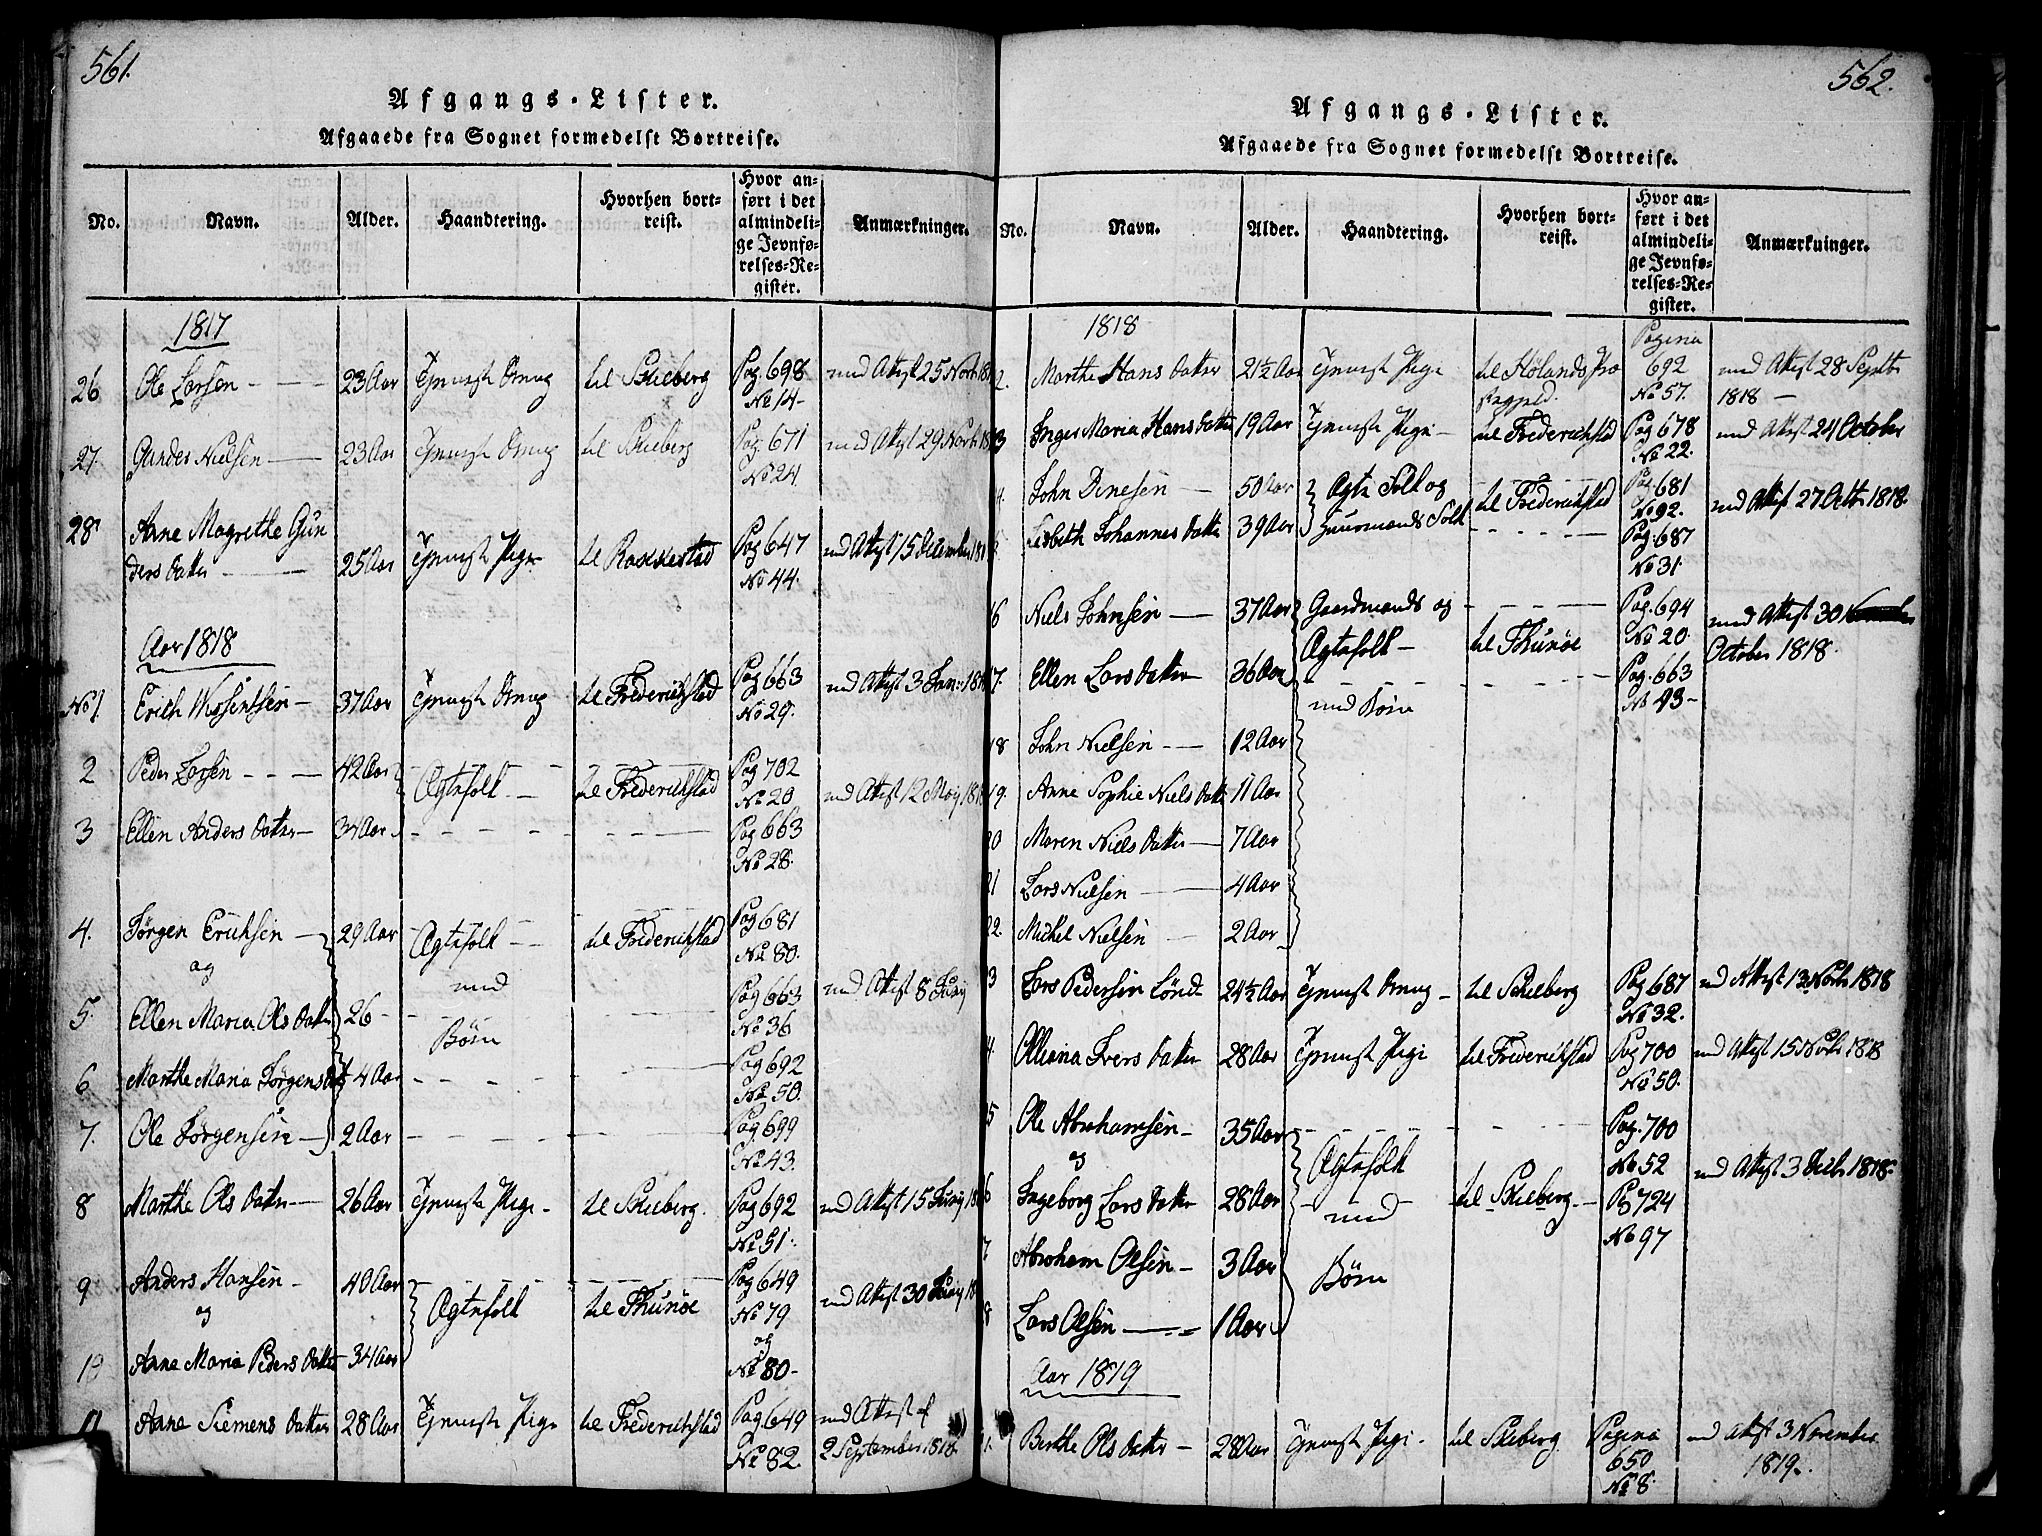 561.
Afgangs-Lister.
Afgaaede fra Sognet formedelst Bortreise.
No. Navn. Alder. Haandtering. Hvorhen bortreist. Hvor anført i det almindelige Jevnførelses-Register. Anmærkninger.
1817
26 Ole Larsen 23 Aar Tjeneste Dreng til Skieberg Pag. 698 No 14 med Attest 25 Novbr
27 Gunder Nielsen 23 Aar Tjeneste Dreng til Skieberg Pag. 671 No 24 med Attest 29 Novbr
28 Anne Magrethe Gunders Datter 25 Aar Tjeneste Pige til Rakkestad Pag 647 No 44. med Attest 15 December
Aar 1818
No 1. Erich 37 Aar Tjeneste Dreng til Friderichstad Pag 663 No 29. med Attest 3 Jan:
2 Peder Larsen 42 Aar Ægtefolk til Friderichstad Pag 702 No 20 med Attest 12 May
3 Ellen Anders Datter 34 Aar Pag 663 No 28.
4. Jørgen Erichsen 29 Aar Ægtefolk til Friderichstad Pag 681 No 80.
og med
5. Ellen Maria Ols Datter 26 Børn Pag 663 No 36 med Attest 8 Juny
6 Marthe Maria Jørgens 4 Aar Pag 692 No 50.
7. Ole Jørgensen 2 Aar Pag 699 No 43.
8 Marthe Ols Datter 26 Aar Tjeneste Pige til Skieberg. Pag 692 No 51. med Attest 15 Juny
9 Anders Hansen 40 Aar Ægtefolk til Thunøe Pag 649 No 79 med Attest 30 Juny
og og
10 Anne Maria Peders Datter 34 Aar No 80
11 Anne Siemens Datter 28 Aar Tjeneste Pige til Friderichstad Pag 649 No 82. med Attest
2 September 1818
562.
Afgangs-Lister.
Afgaaede fra Sognet formedelst Bortreise.
No. Navn. Alder. Haandtering. Hvorhen bortreist. Hvor anført i det almindelige Jevnførelses-Register. Anmærkuinger.
1818
2. Marthe Hans Datter 21½ Aar Tjeneste Pige til Hølands Præstegjeld. Pagina 692 No 57. med Attest 28 Septbr 1818
3 Inger Maria Hans Datter 19 Aar Tjeneste Pige til Friderichstad Pag 678 No 22. med Attest 24 October
4. John Dinesen 50 Aar Ægte Folk og til Friderichstad Pag. 681 No 92. med Attest 27 Octbr 1818
Lisbeth Johannes Datter 39 Aar Huusmands Folk Pag. 687 No 31.
6 Niels Johnsen 37 Aar Gaardmands og Pag. 694 No 20. med Attest 30
Ægtefolk til Thunøe October 1818.
7 Ellen Lars Datter 36 Aar med Børn Pag. 663 No 43
18 John Nielsen 12 Aar
19. Anne Sophie Niels Datter 11 Aar
20 Maren Niels Datter 7 Aar
21 Lars Nielsen 4 Aar
22. Michel Nielsen 2 Aar
3 Lars Pedersen 24½ Aar Tjeneste Dreng til Skieberg Pag 687 No 32. med Attest 13 Novbr 1818
4. Olliana Ivers Datter 28 Aar Tjeneste Pige til Friderichstad Pag 700 No 50. med Attest 15 Novbr 1818
5 Ole Abrahamsen 35 Aar Ægtefolk Pag. 700 No 52 med Attest 3 Decbr 1818.
og
6 Ingeborg Lars Datter 28 Aar med til Skieberg. Pag 724 No 97
7 Abraham Olsen 3 Aar Børn
8 Lars Olsen 1 Aar
Aar 1819
1. Berthe Ols Datter 28 Aar Tjeneste Pige til Skieberg Pagina 650 No 8. med Attest 3 November 1819.